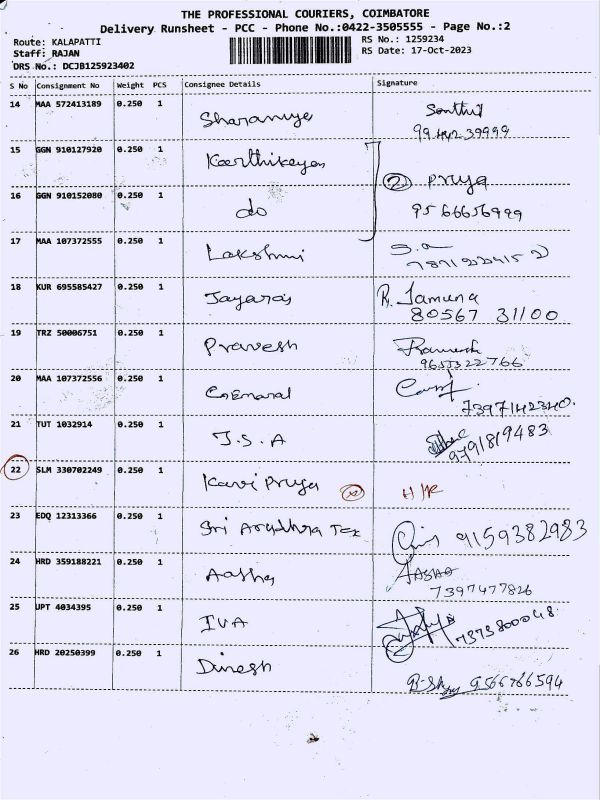 THE PROFESSIONAL COURIERS, COIMBATORE
Delivery Runsheet - PCC - Phone No.:0422-3505555 - Page No.:2
Route: KALAPATTI
Staff: RAJAN
DRS No.: DCJB125923402
RS No.: 1259234
RS Date: 17-Oct-2023
S No Consignment No Weight PCS Consignee Details Signature
14 MAA 572413189 0.250 1 Sharaniya
15 GGN 910127920 0.250 1 Karthikeyan
2 Priya
16 GGN 910152080 0.250 1 do 9566656999
17 MAA 107372555 0.250 1 Lakshmi
18 KUR 695585427 0.250 1 Jayaraj R. Jamuna
80567 31100
19 TRZ 50006751 0.250 1 Pravesh
9655322766
20 MAA 107372556 0.250 1
7397142340.
21 TUT 1032914 0.250 1 J.S.A
9791819483
22 SLM 330702249 0.250 1 Kavi Priya
23 EDQ 12313366 0.250 1 Sri Arudhra Tex 9159382983
24 HRD 359188221 0.250 1
7397477826
25 UPT 4034395 0.250 1 IVA
7373800048
2
26 HRD 20250399 0.250 1 Dinesh
9566766594